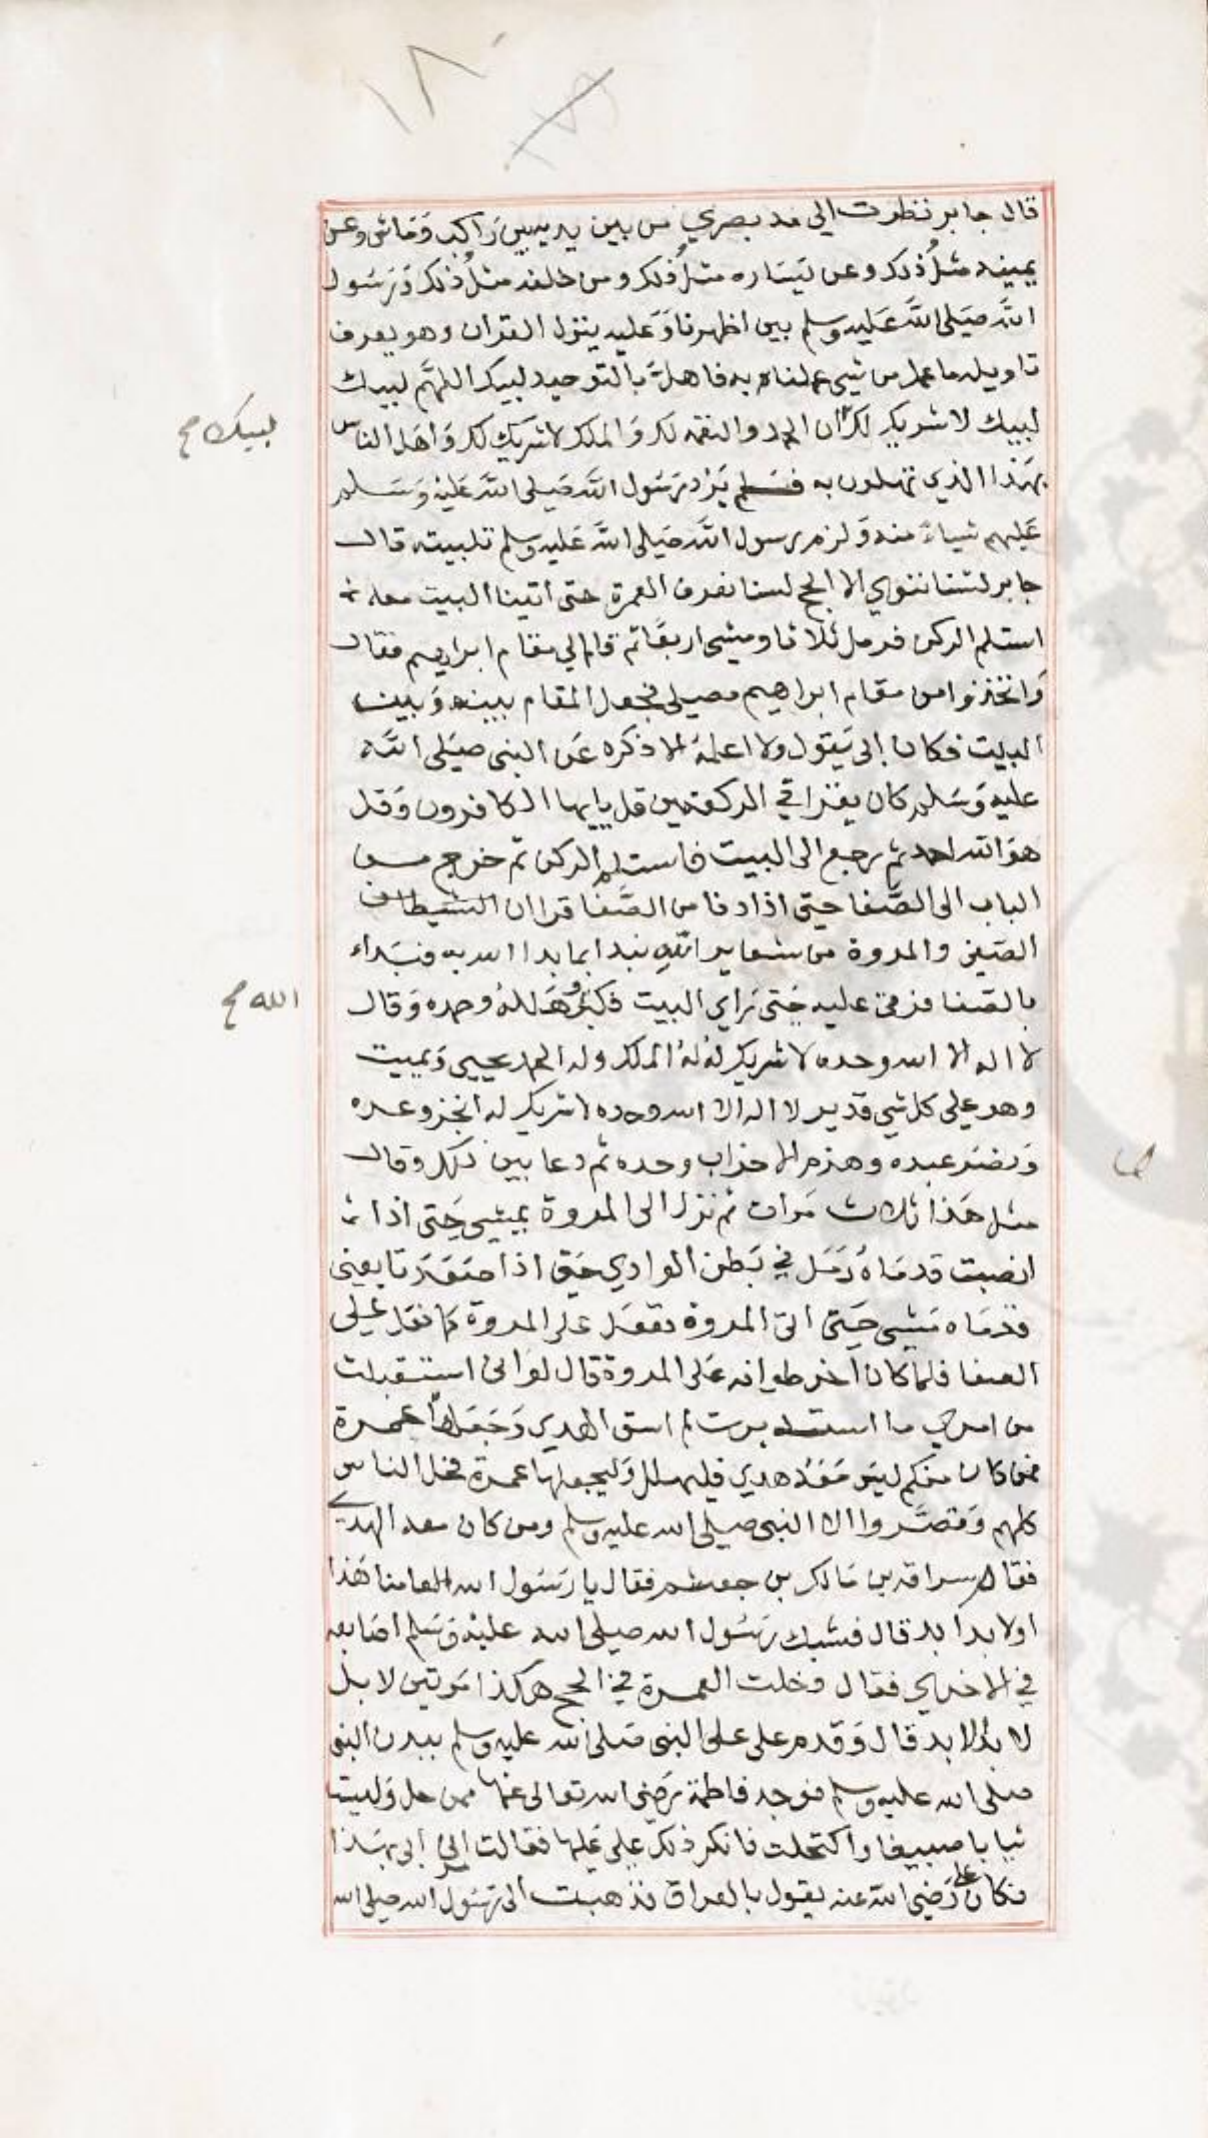 ١٨٠
قال جابر نظرت الى مد بصري من بين يديه بين راكب وماش وعن
يمينه مثل ذلك وعن يساره مثل ذلك ومن خلفه مثل ذلك ورسول
الله صلى الله عليه وسلم بين اظهرنا وعليه ينزل القران وهو يعرف
تاويله ما عمل من شي عملناه به فاهل بالتوحيد لبيك اللهم لبيك
لبيك لا شريك لك ان الحمد والنعمه لك والملك لا شريك لك واهل الناس
لبيك صح
بهذا الذي تهلون به فلم يزد رسول الله صلى الله عليه وسلم
عليهم شياء منه ولزم رسول الله صلى الله عليه وسلم تلبيته قال
جابر لسنا ننوي الا الحج لسنا نعرف العمرة حتى اتينا البيت معه ثم
استلم الركن فرمل ثلاثا ومشى اربعا ثم قام الي مقام ابراهيم فقال
واتخذوا من مقام ابراهيم مصلى فجعل المقام بينه وبين
البيت فكان ابى يقول ولا اعلمه الا ذكره عن النبى صلى الله
عليه وسلم كان يقرا في الركعتين قل يايها الكافرون وقل
هو الله احد ثم رجع الى البيت فاستلم الركن ثم خرج من
الباب الى الصفا حتى اذا دنا من الصفا قرا ان
الصفى والمروة من شعاير الله نبدا بما بدا الله به فبداء
بالصفا فرقى عليه حتى راي البيت فكبر وهلل وحده وقال
الله صح
لا اله الا الله وحده لا شريك له له الملك وله الحمد يحيى ويميت
وهو على كل شي قدير لا اله الا الله وحده لا شريك له انجز وعده
ونصر عبده وهزم الاحزاب وحده ثم دعا بين ذلك وقال
مثل هذا ثلاث مرات ثم نزل الى المروة يمشي حتى اذا
انصبت قدماه رمل في بطن الوادي حتى اذا صعدتا يعنى
قدماه مشى حتى اتى المروة ففعل على المروة كما فعل على
الصفا فلما كان اخر طوافه على المروة قال لو انى استقبلت
من امري ما استدبرت لم اسق الهدي وجعلتها عمرة
فمن كان منكم ليس معه هدي فليهلل وليجعلها عمرة فحل الناس
كلهم وقصروا الا النبى صلى الله عليه وسلم ومن كان معه الهدي
فقال سراقه بن مالك بن جعشم فقال يا رسول الله العامنا هذا
او لابد ابد قال فشبك رسول الله صلى الله عليه وسلم اصابعه
في الاخري فقال دخلت العمرة في الحج هكذا مرتين لا بل
لابد لابد قال وقدم على على النبى صلى الله عليه وسلم ببدن النبى
صلى الله عليه وسلم فوجد فاطمة رضى الله تعالى عنها ممن حل ولبست
ثيابا صبيغا واكتحلت فانكر ذلك علي عليها فقالت ابى بهذا
فكان على رضى الله عنه يقول بالعراق فذهبت الى رسول الله صلى الله